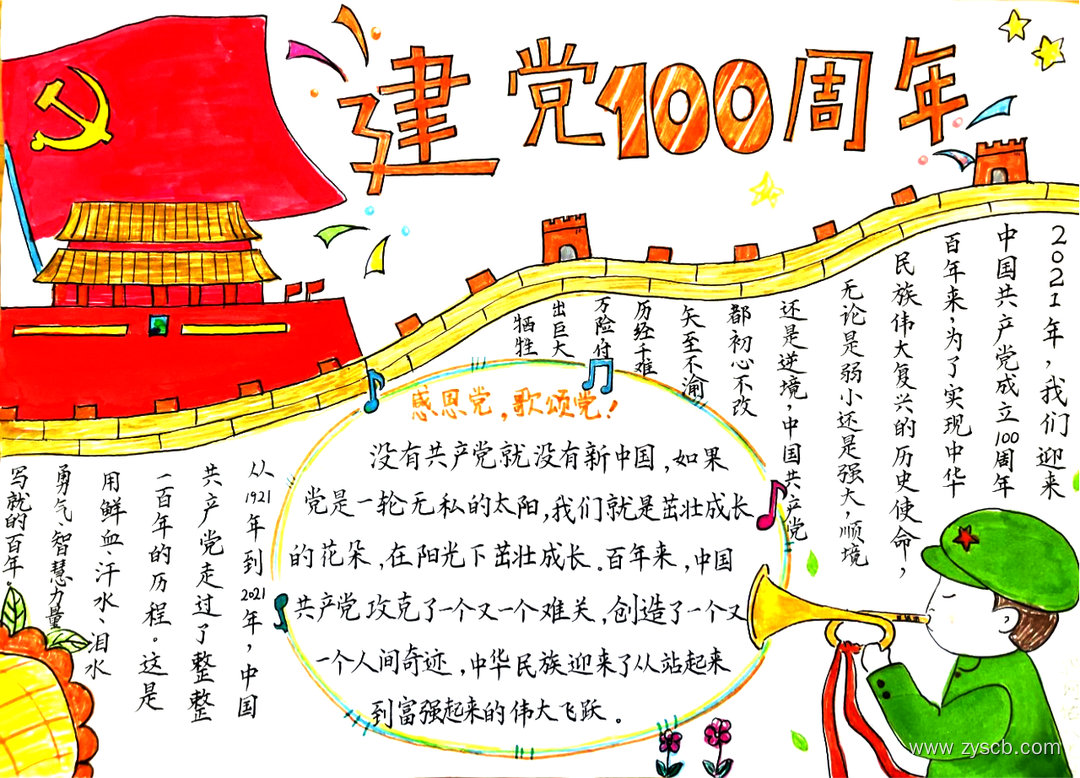 建党100周年
2021年，我们迎来
中国共产党成立100周年
百年来，为了实现中华
民族伟大复兴的历史使命，
无论是弱小还是强大，顺境
还是逆境，中国共产党
都初心不改
矢至不渝
历经千难
万险，付
出巨大
牺牲
感恩党，歌颂党！
没有共产党就没有新中国，如果
党是一轮无私的太阳，我们就是茁壮成长
的花朵，在阳光下茁壮成长。百年来，中国
共产党攻克了一个又一个难关，创造了一个又
一个人间奇迹，中华民族迎来了从站起来
到富强起来的伟大飞跃。
从1921年到2021年，中国
共产党走过了整整
一百年的历程。这是
用鲜血、汗水、泪水
勇气、智慧力量
写就的百年。
www.zyscb.com